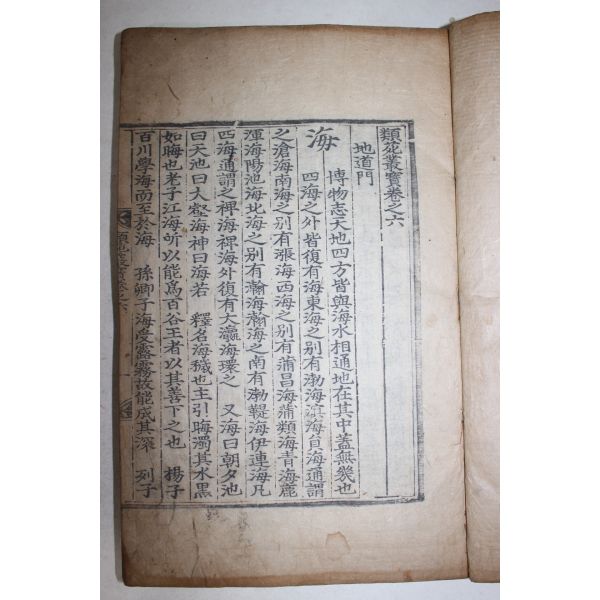 類苑叢寶卷之六
地道門
海
博物志天地四方皆與海水相通地在其中蓋無幾也
四海之外皆復有海東海之別有渤海溟海員海通謂
之滄海南海之別有漲海西海之別有蒲昌海蒲類海青海鹿
渾海陽池海北海之別有瀚海瀚海之南有渤鞮海伊連海凡
四海通謂之裨海裨海外復有大瀛海環之 又海曰朝夕池
曰天池曰大壑海神曰海若 釋名海穢也主引晦濁其水黑
如晦也老子江海所以能爲百谷王者以其善下之也 揚子
百川學海而至於海 孫卿子海受露霧故能成其深 列子
類苑叢寶卷六